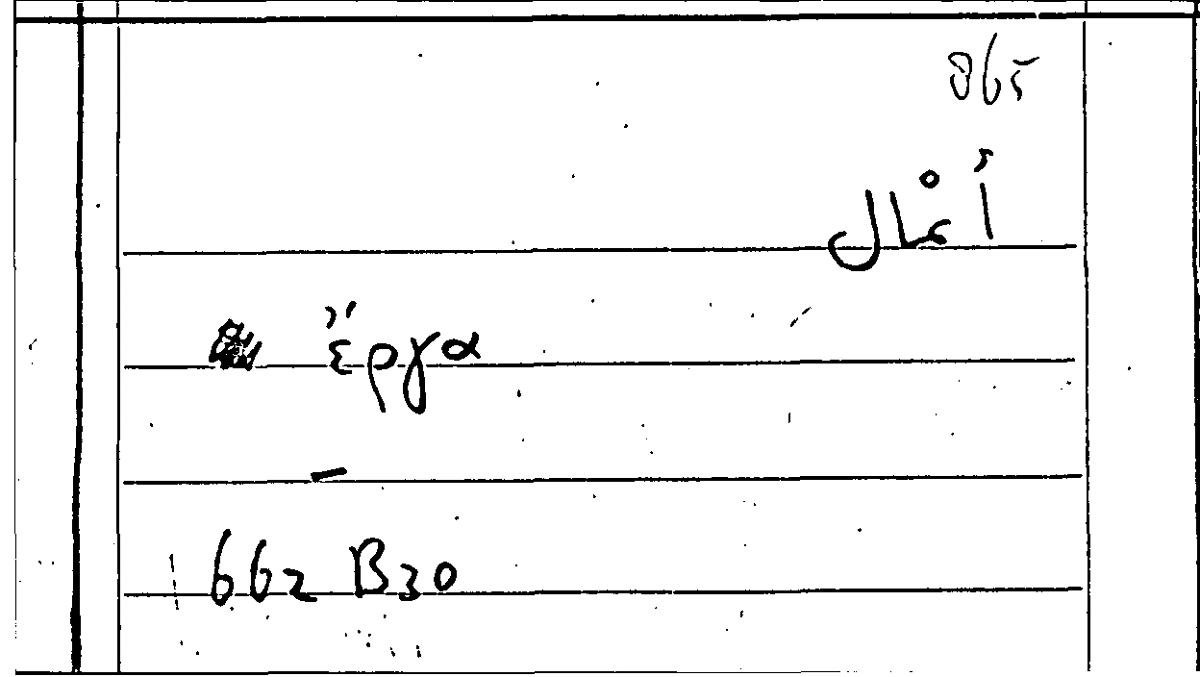 865
أعْمال
ἔργα
–
662 B30